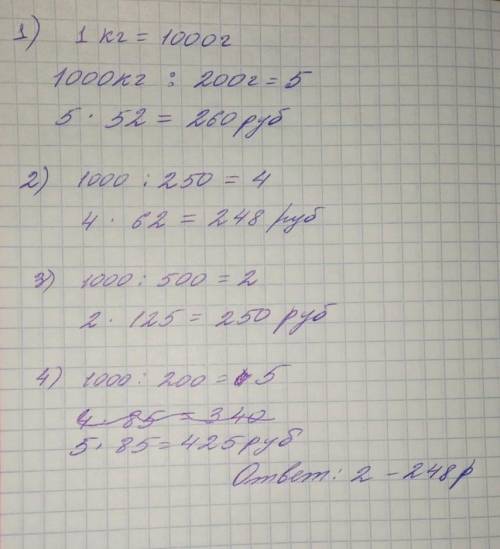 1) 1 кг = 1000г
1000кг : 200г = 5
5 · 52 = 260 руб
2) 1000 : 250 = 4
4 · 62 = 248 руб
3) 1000 : 500 = 2
2 · 125 = 250 руб
4) 1000 : 200 = 5
4 · 85 = 340
5 · 85 = 425 руб
Ответ: 2 - 248 р